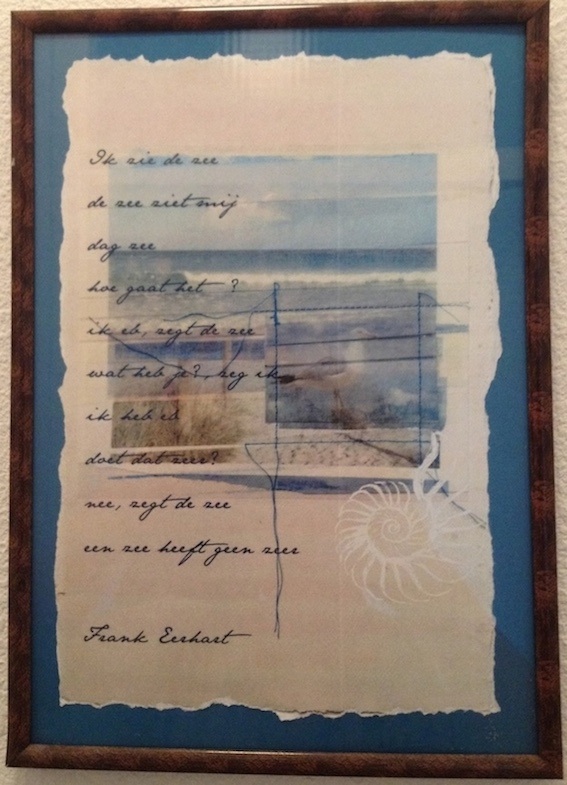 Ik zie de zee
de zee ziet mij
dag zee
hoe gaat het ?
ik eb, zegt de zee
wat heb je?, zeg ik
ik heb eb
doet dat zeer?
nee, zegt de zee
een zee heeft geen zeer
Frank Eerhart